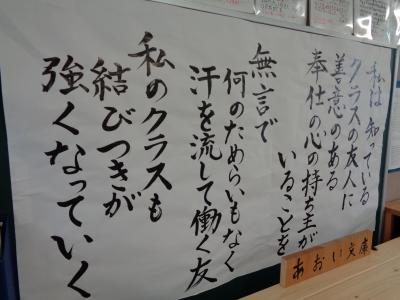 私は知っている
クラスの友人に
善意のある
奉仕の心の持ち主が
いることを
無言で
何のためらいもなく
汗を流して働く友
私のクラスも
結びつきが
強くなっていく
あおい文庫